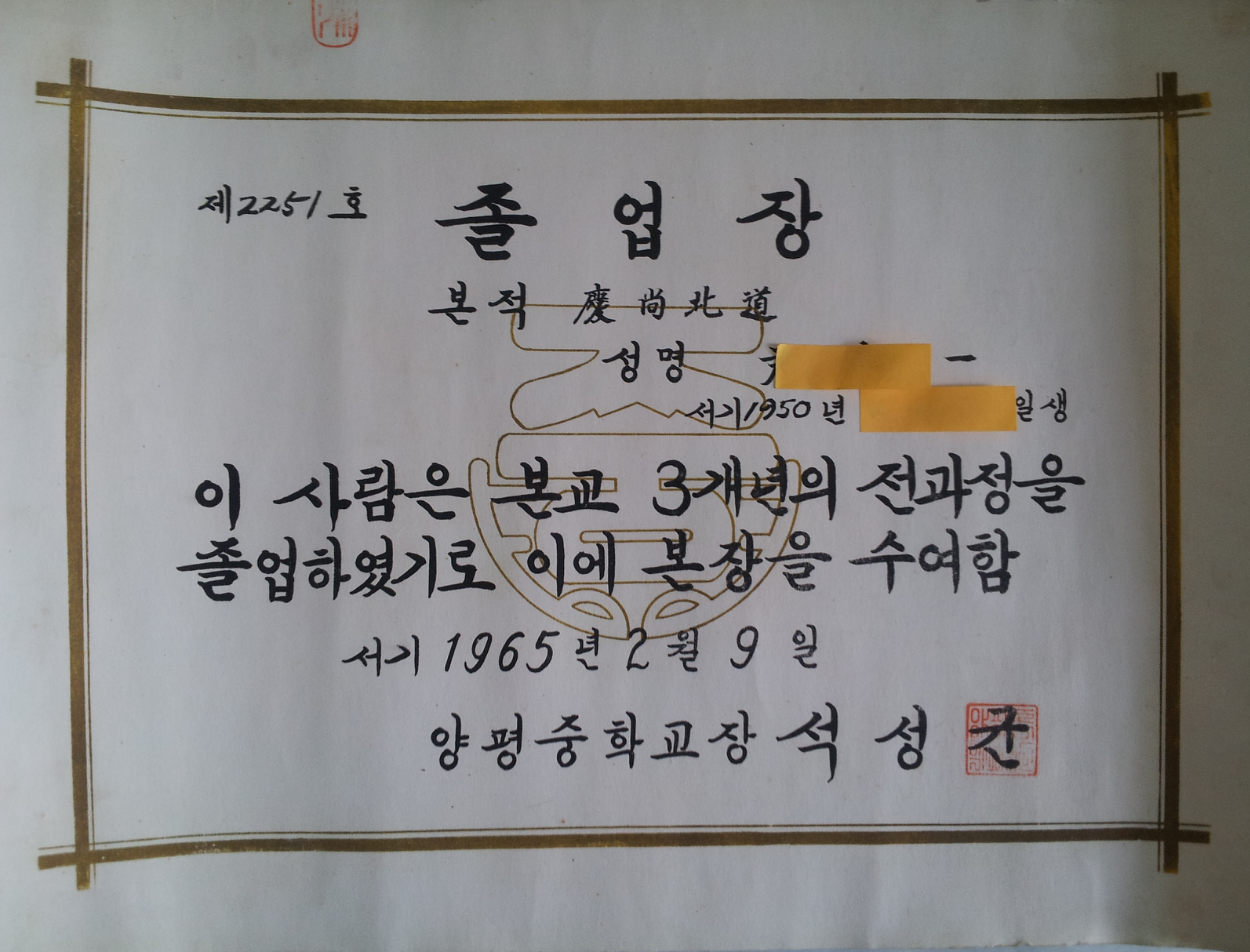 제2251호
졸업장
본적 慶尚北道
성명 一
서기1950년 일생
이 사람은 본교 3개년의 전과정을
졸업하였기로 이에 본장을 수여함
서기 1965년 2월 9일
양평중학교장 석성균